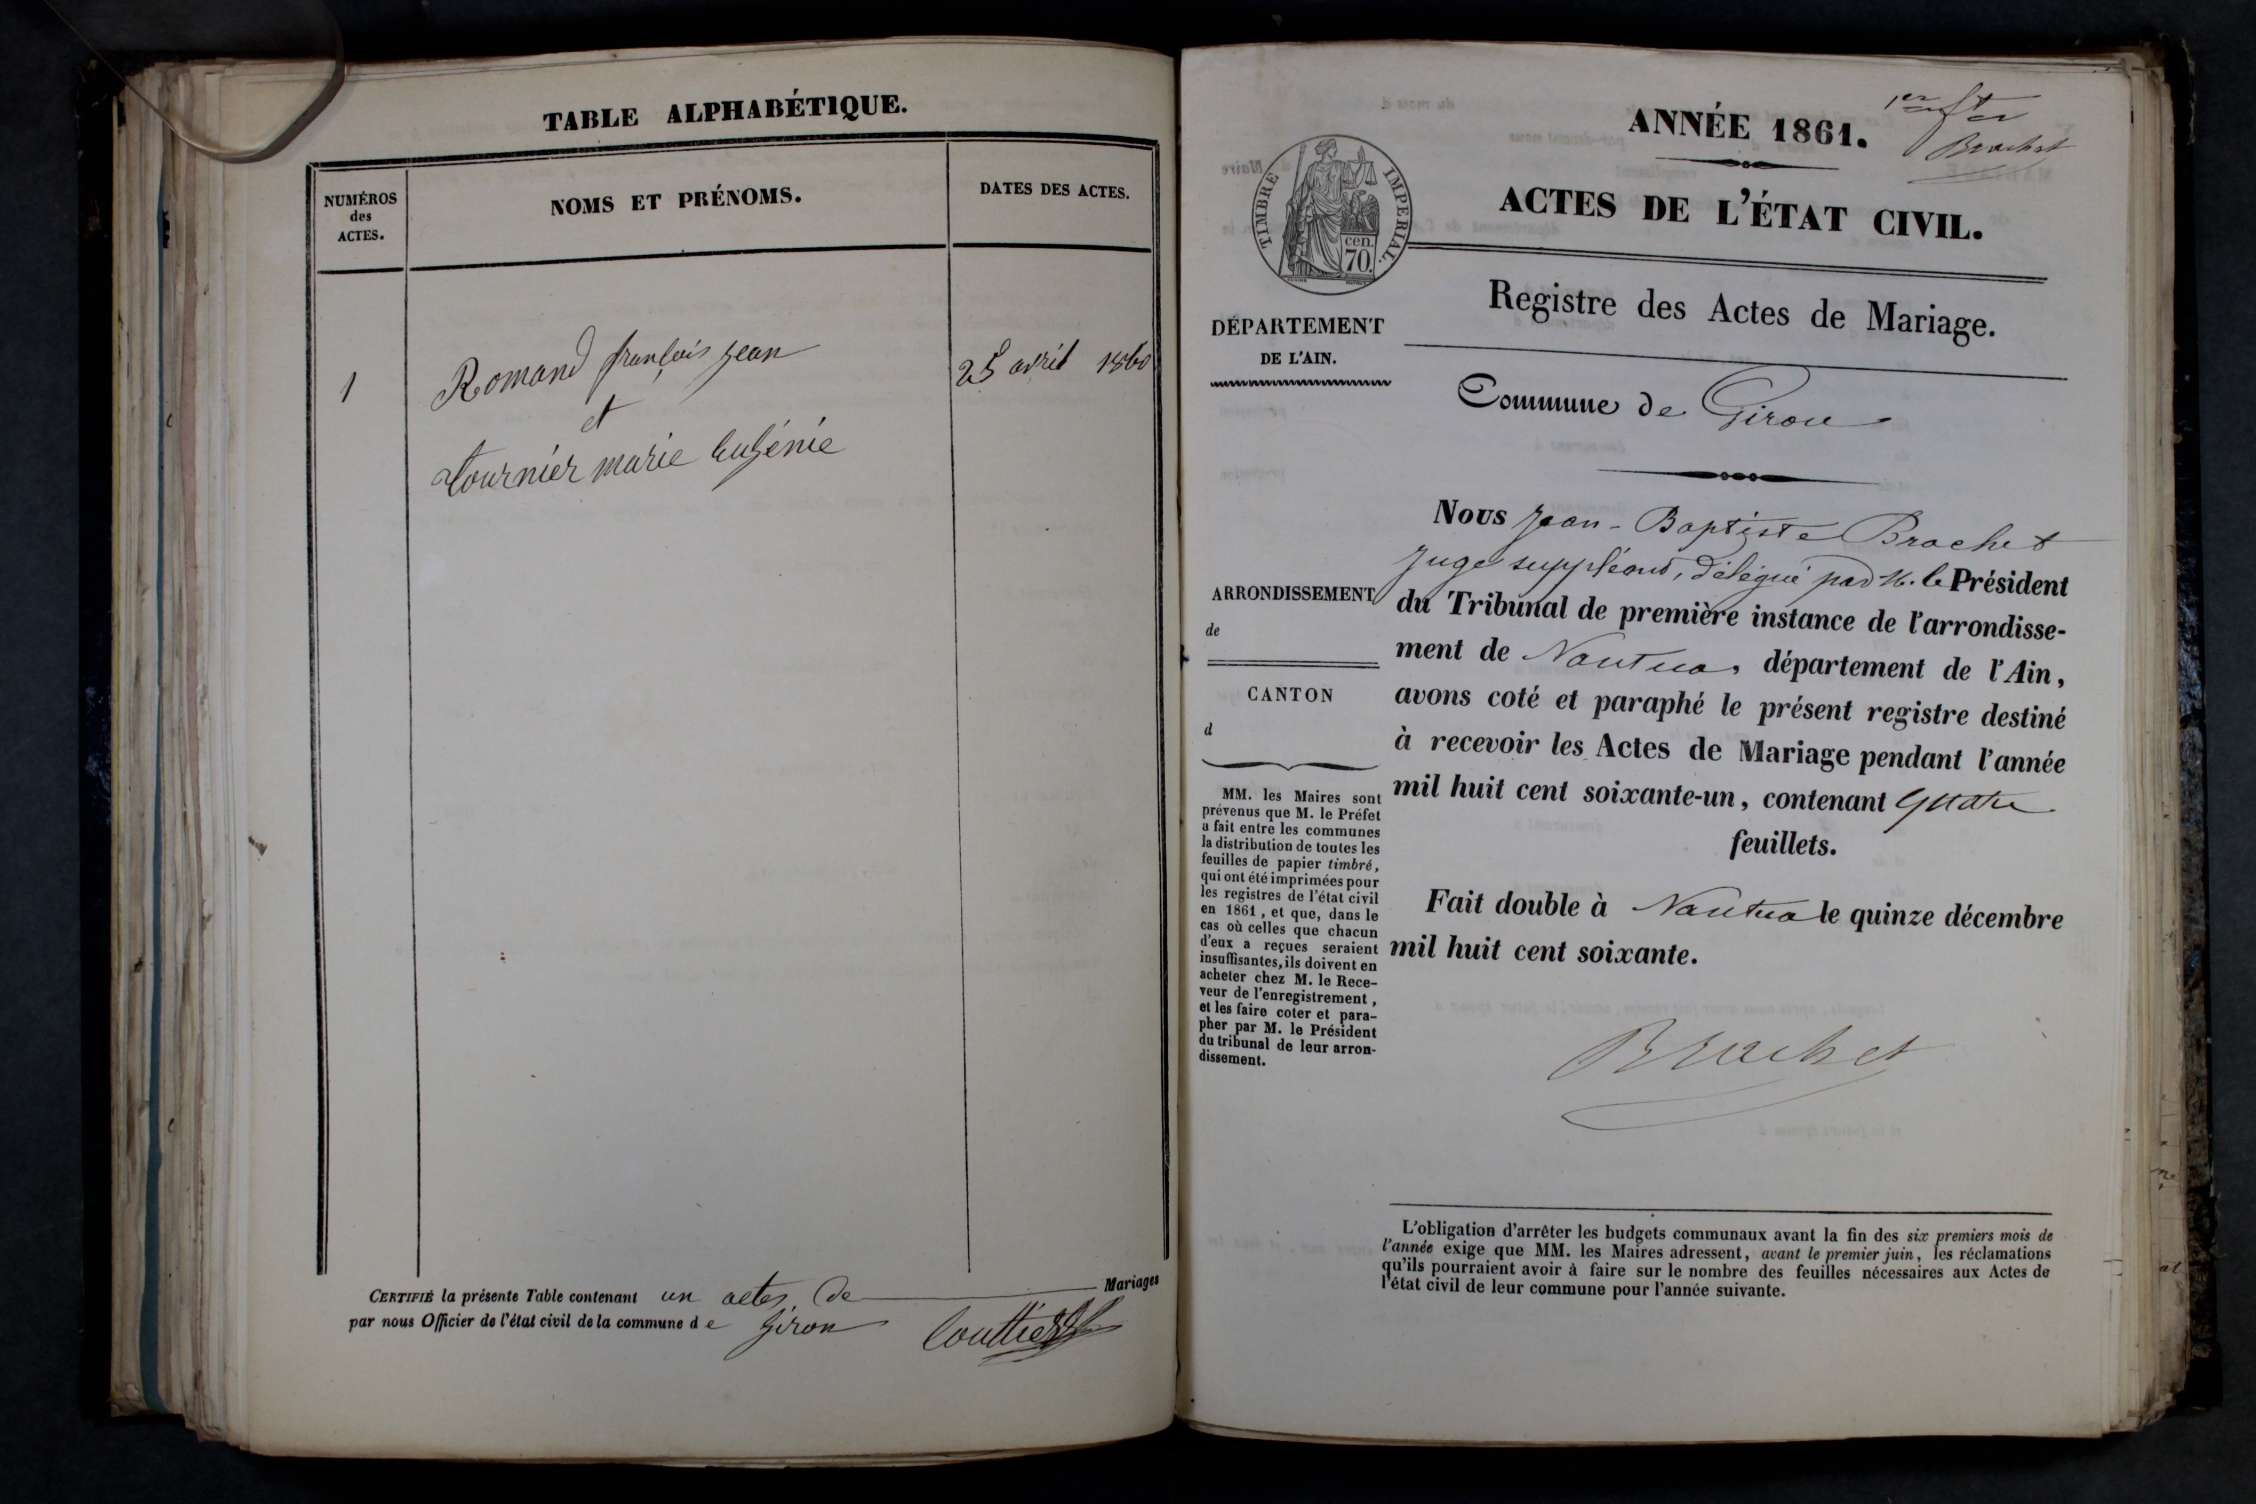 TABLE ALPHABÉTIQUE.
NUMÉROS
des
ACTES.
NOMS ET PRÉNOMS.
DATES DES ACTES.
1
Romand françois jean
25 avril 1860
et
tournier marie Eugénie
CERTIFIÉ la présente Table contenant un actes de Mariages
par nous Officier de l'état civil de la commune de Giron
ANNÉE 1861.
1er
Brachet
ACTES DE L'ÉTAT CIVIL.
TIMBRE IMPERIAL.
cen.
70.
Registre des Actes de Mariage.
DÉPARTEMENT
DE L'AIN.
Commune de Giron
Nous Jean-Baptiste Brachet
Juge suppléant, délégué par M. le Président
du Tribunal de première instance de l'arrondisse-
ment de Nantua, département de l'Ain,
avons coté et paraphé le présent registre destiné
à recevoir les Actes de Mariage pendant l'année
mil huit cent soixante-un, contenant quatre
feuillets.
Fait double à Nantua le quinze décembre
mil huit cent soixante.
Brachet
ARRONDISSEMENT
de
CANTON
d
MM. les Maires sont
prévenus que M. le Préfet
a fait entre les communes
la distribution de toutes les
feuilles de papier timbré,
qui ont été imprimées pour
les registres de l'état civil
en 1861, et que, dans le
cas où celles que chacun
d'eux a reçues seraient
insuffisantes, ils doivent en
acheter chez M. le Rece-
veur de l'enregistrement,
et les faire coter et para-
pher par M. le Président
du tribunal de leur arron-
dissement.
L'obligation d'arrêter les budgets communaux avant la fin des six premiers mois de
l'année exige que MM. les Maires adressent, avant le premier juin, les réclamations
qu'ils pourraient avoir à faire sur le nombre des feuilles nécessaires aux Actes de
l'état civil de leur commune pour l'année suivante.